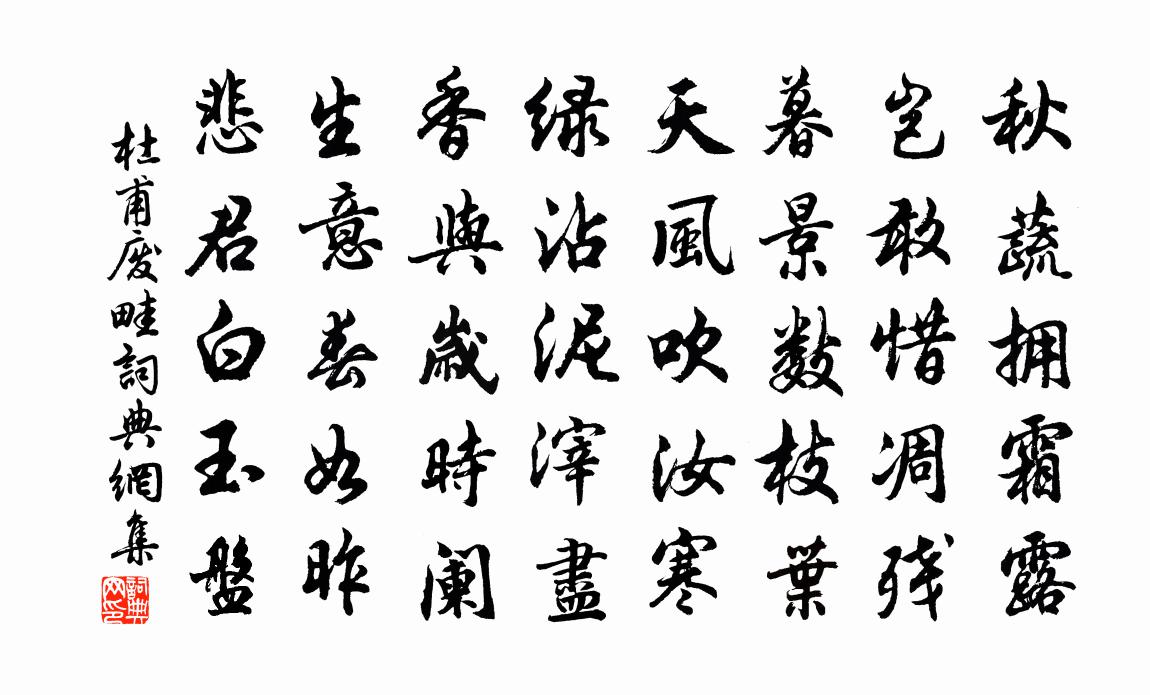 秋蔬拥霜露
岂敢惜凋残
暮景數枝葉
天風吹汝寒
绿沾泥滓盡
香與歲時阑
生意春如昨
悲君白玉盤
杜甫廢畦詞典網集
詞典网印